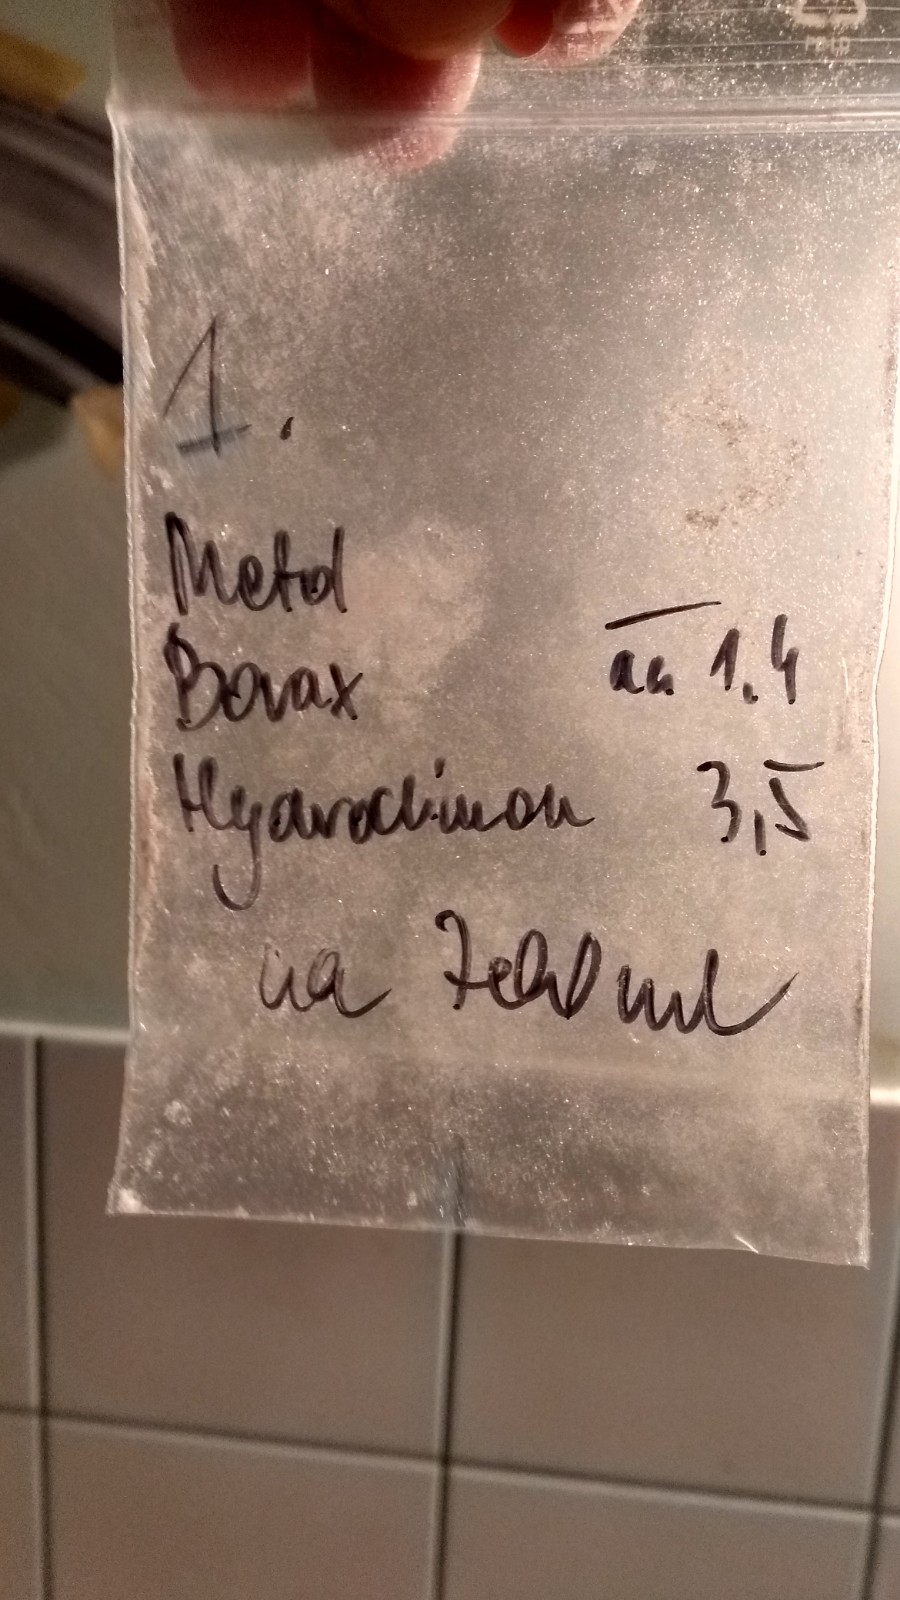 1.
Metol
Borax āā 1.4
Hydrochinon 3,5
na 700 ml